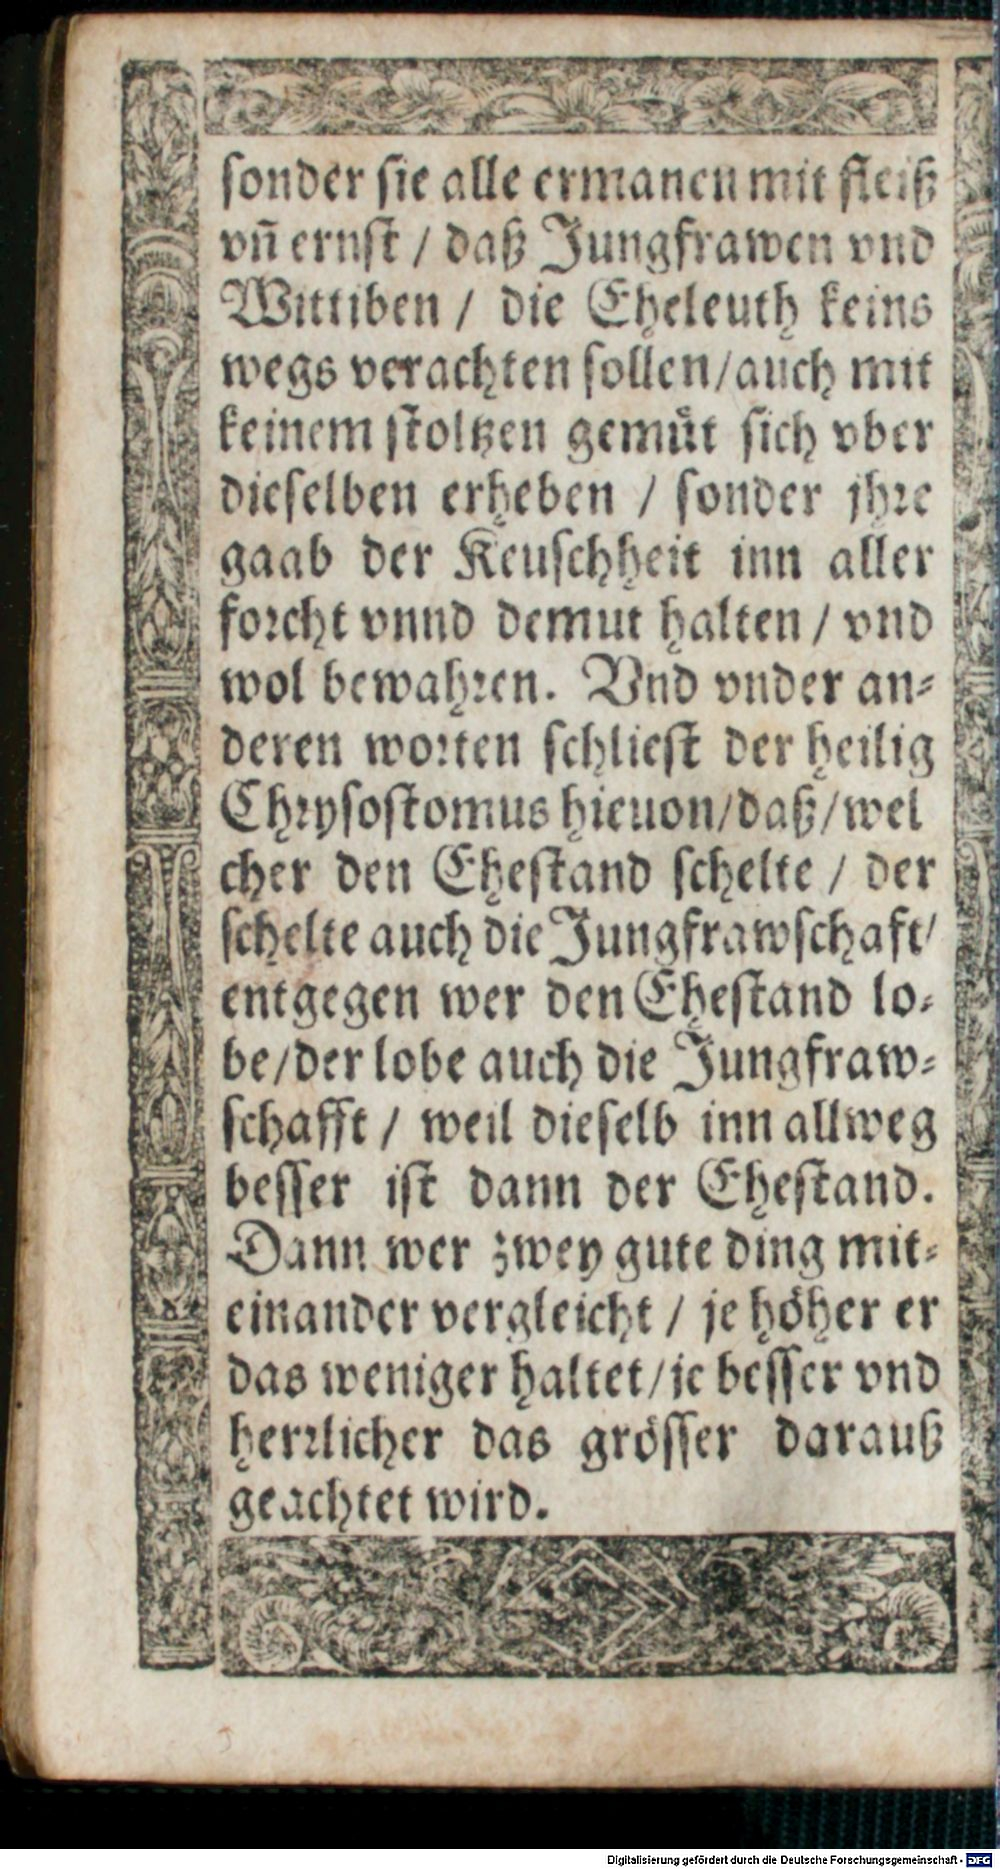 sonder sie alle ermanen mit fleiß
vñ ernst / daß Jungfrawen vnd
Wittiben / die Eheleuth keins
wegs verachten sollen / auch mit
keinem stoltzen gemüt sich vber
dieselben erheben / sonder jhre
gaab der Keuschheit inn aller
forcht vnnd demut halten / vnd
wol bewahren. Vnd vnder an=
deren worten schliest der heilig
Chrysostomus hieuon / daß / wel
cher den Ehestand schelte / der
schelte auch die Jungfrawschaft /
entgegen wer den Ehestand lo=
be / der lobe auch die Jungfraw=
schafft / weil dieselb inn allweg
besser ist dann der Ehestand.
Dann wer zwey gute ding mit=
einander vergleicht / je höher er
das weniger haltet / je besser vnd
herrlicher das grösser darauß
geachtet wird.
Digitalisierung gefördert durch die Deutsche Forschungsgemeinschaft - DFG